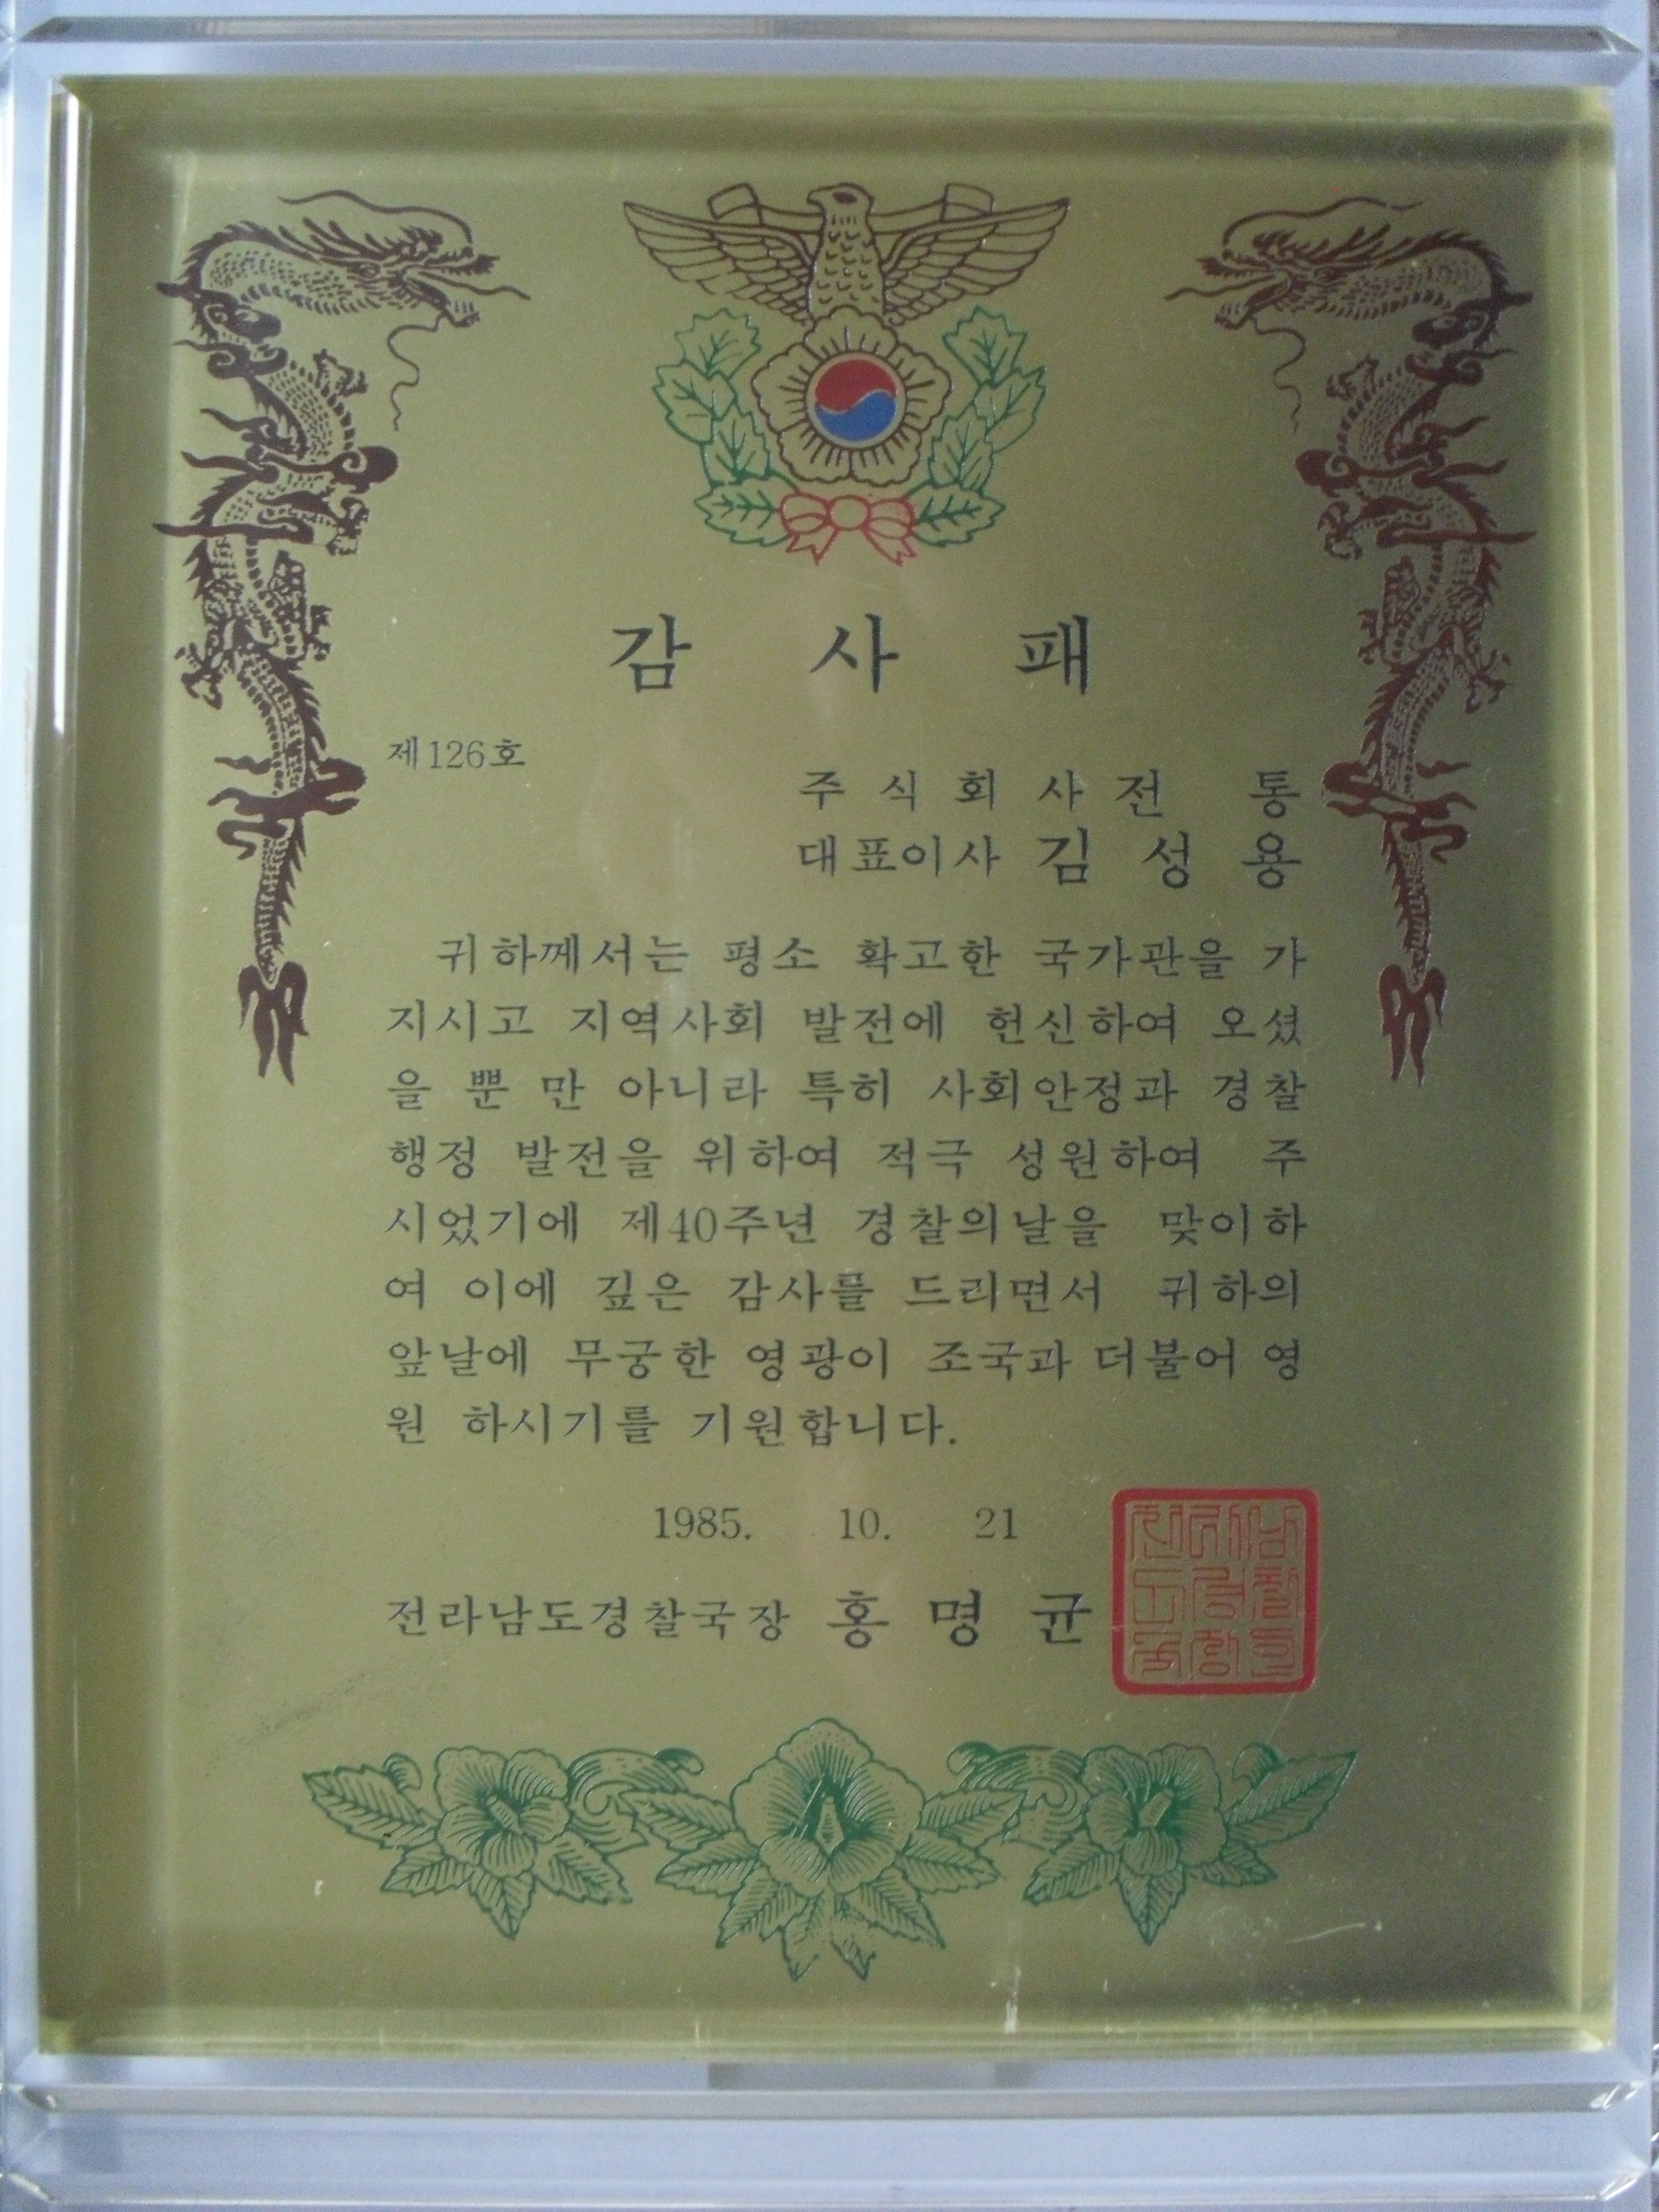 감 사 패
제126호
주 식 회 사 전 통
대표이사 김 성 용
귀하께서는 평소 확고한 국가관을 가
지시고 지역사회 발전에 헌신하여 오셨
을 뿐 만 아니라 특히 사회안정과 경찰
행정 발전을 위하여 적극 성원하여 주
시었기에 제40주년 경찰의날을 맞이하
여 이에 깊은 감사를 드리면서 귀하의
앞날에 무궁한 영광이 조국과 더불어 영
원 하시기를 기원합니다.
1985. 10. 21
전라남도경찰국장 홍 명 균